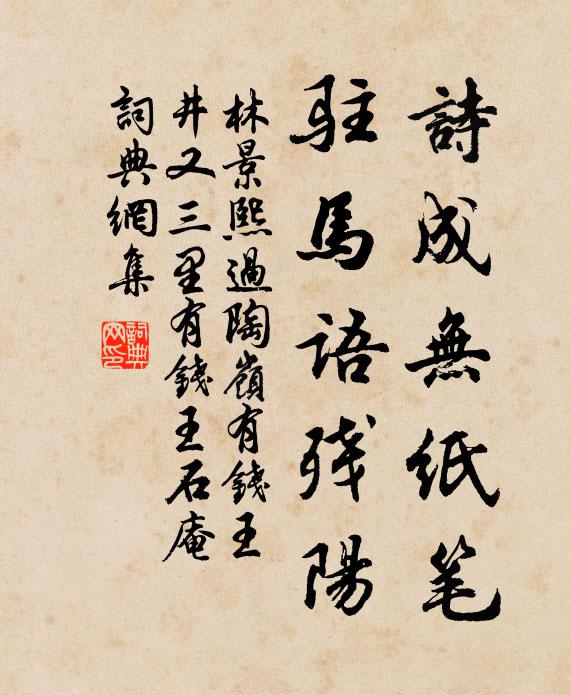 詩成無紙笔
駐馬語残陽
林景熙過陶嶺有錢王
井又三里有錢王石庵
詞典網集
詞典网印